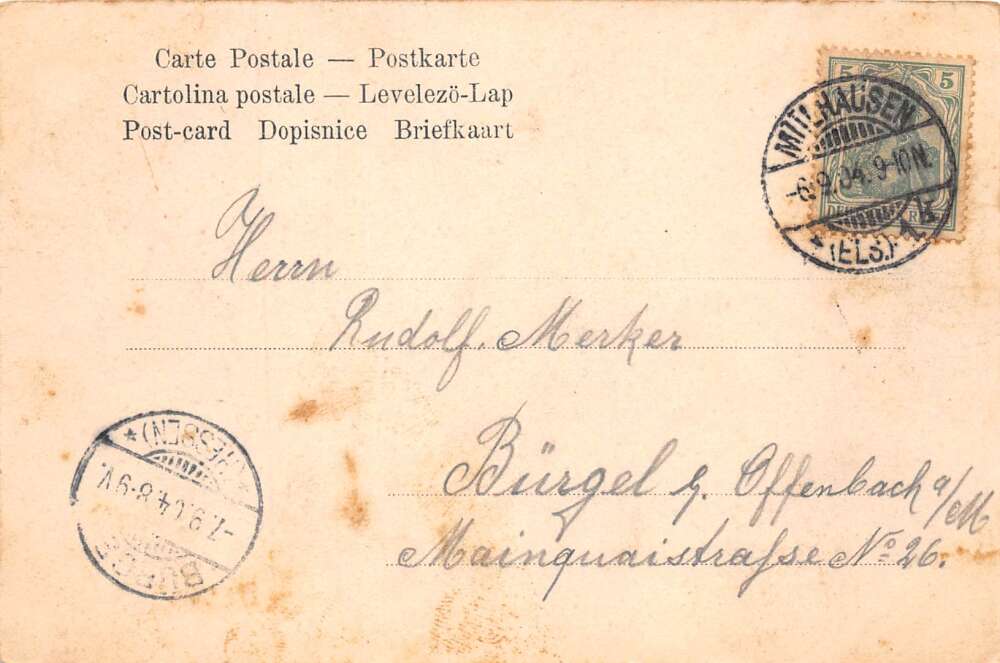 Carte Postale — Postkarte
Cartolina postale — Levelezö-Lap
Post-card Dopisnice Briefkaart
5 5
MÜLHAUSEN
-6.9.04. 9-10N.
* (ELS.) 1.k
Herrn
Rudolf. Merker
Bürgel b. Offenbach a/M
Mainquaistraße No 26.
(HESSEN) *
-7.9.04. 8-9V.